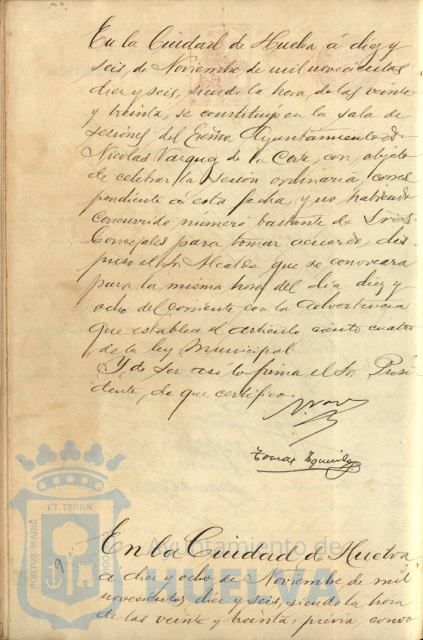 En la Ciudad de Huelva á diez y
seis de Noviembre de mil novecientos
diez y seis, siendo la hora de las veinte
y treinta, se constituyó en la sala de
sesiones del Excmo Ayuntamiento D.
Nicolas Vazquez de la Corte, con objeto
de celebrar la sesion ordinaria corres
pondiente a esta fecha, y no habiendo
concurrido número bastante de Sres
Concejales para tomar acuerdo, dis
puso el Sr Alcalde que se convocara
para la misma hora del dia diez y
ocho del corriente con la advertencia
que establece el articulo ciento cuatro
de la ley Municipal.
Y de ser asi lo firma el Sr. Presi
dente, de que certifico.
Tomas
En la Ciudad de Huelva
a diez y ocho de Noviembre de mil
novecientos diez y seis, siendo la hora
de las veinte y treinta, previa convo
Ayuntamiento de
HUELVA
PORTUS MARIS
ET TERRÆ